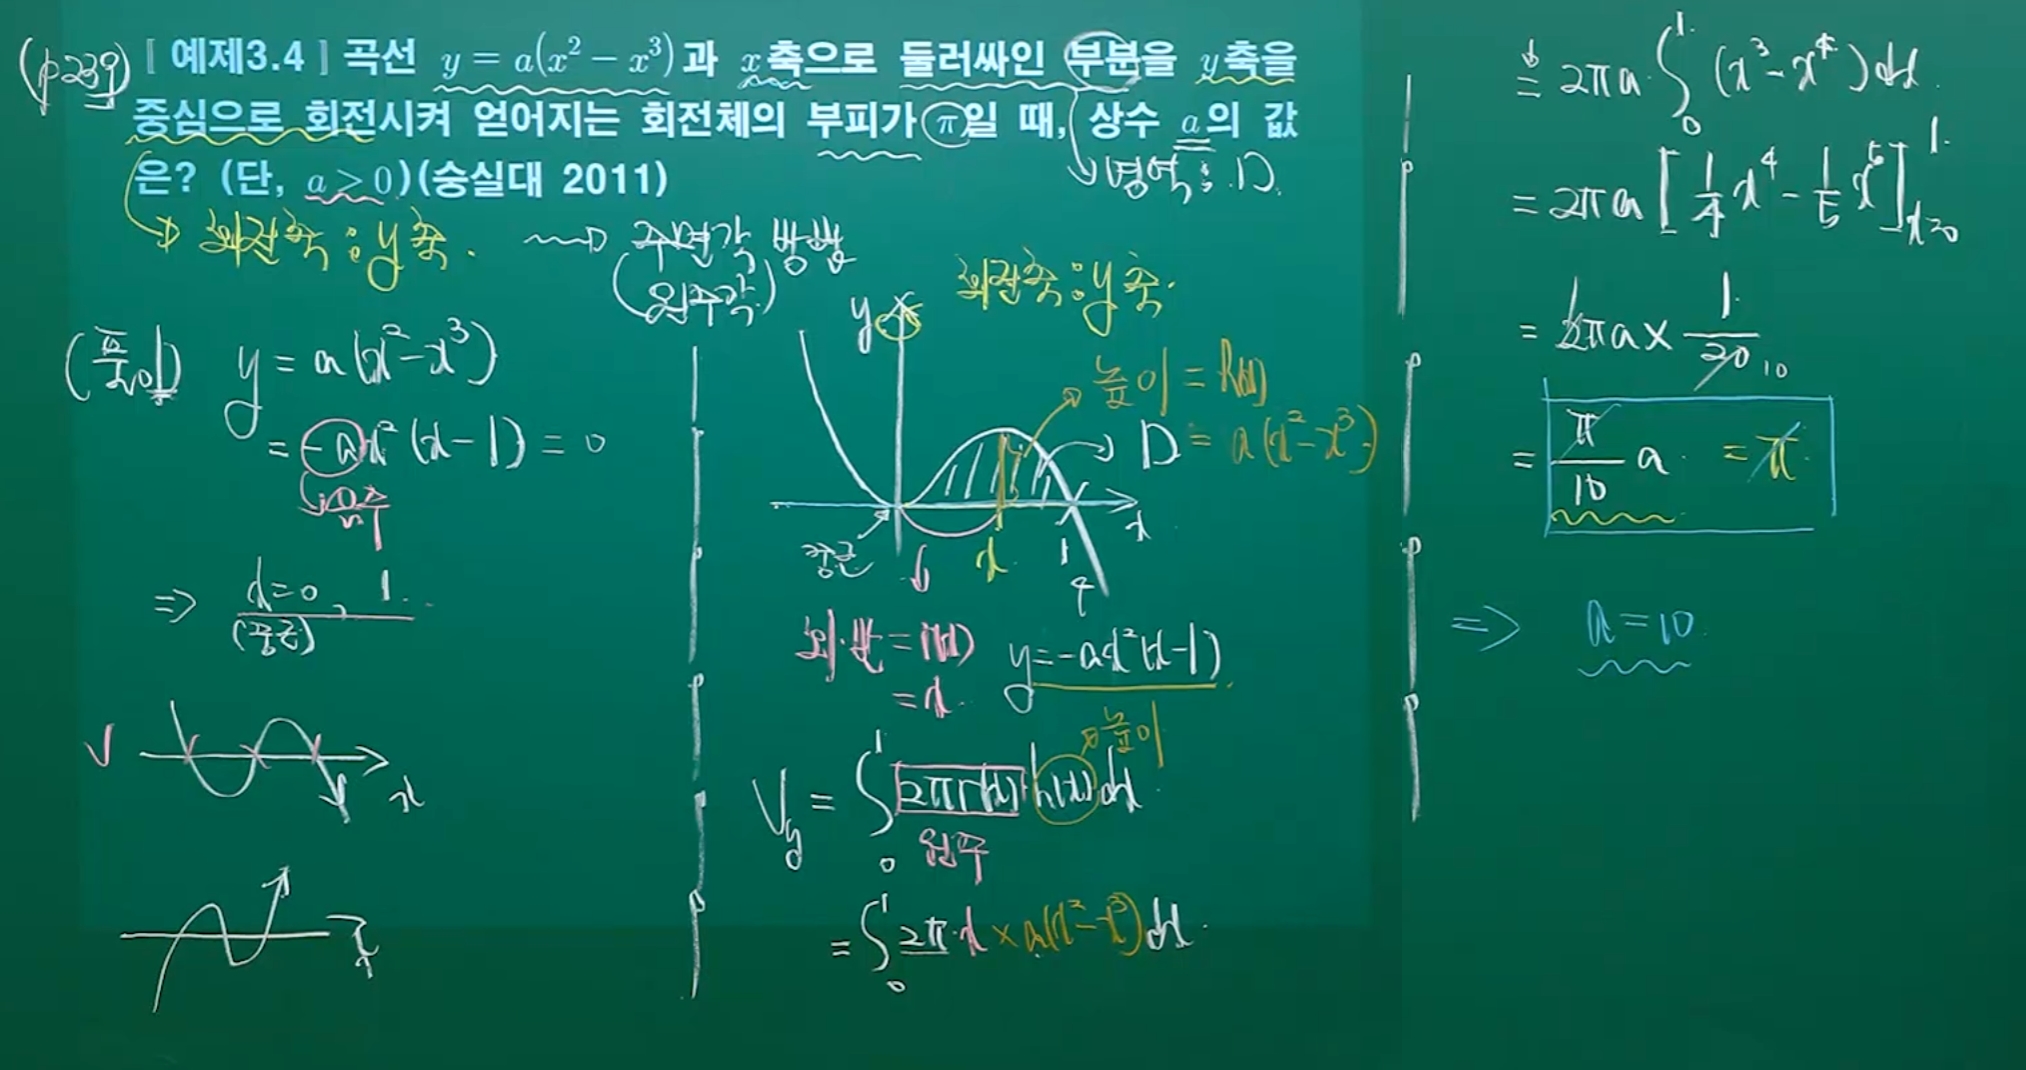 (p239) [ 예제3.4 ] 곡선 y = a(x² − x³)과 x축으로 둘러싸인 부분을 y축을
중심으로 회전시켜 얻어지는 회전체의 부피가 π일 때, 상수 a의 값
은? (단, a > 0)(숭실대 2011)
영역 : D.
→ 회전축 : y축.
→ 주면각 방법
(원주각)
(풀이) y = a(x²−x³)
= −ax²(x−1) = 0
음수
⇒ x=0, 1.
(중근)
x
x
회전축 : y축.
y
높이 = h(x)
D = a(x²−x³)
중근
x
1
x
회·반 = r(x)
= x.
y=−ax²(x−1)
높이
V_y = ∫₀¹ 2πr(x) h(x) dx
원주
= ∫₀¹ 2π·x × a(x²−x³) dx.
= 2πa ∫₀¹ (x³−x⁴) dx.
= 2πa [ 1/4 x⁴ − 1/5 x⁵ ]¹ₓ₌₀
= 2πa × 1/20 10
= π/10 a = π.
⇒ a = 10.